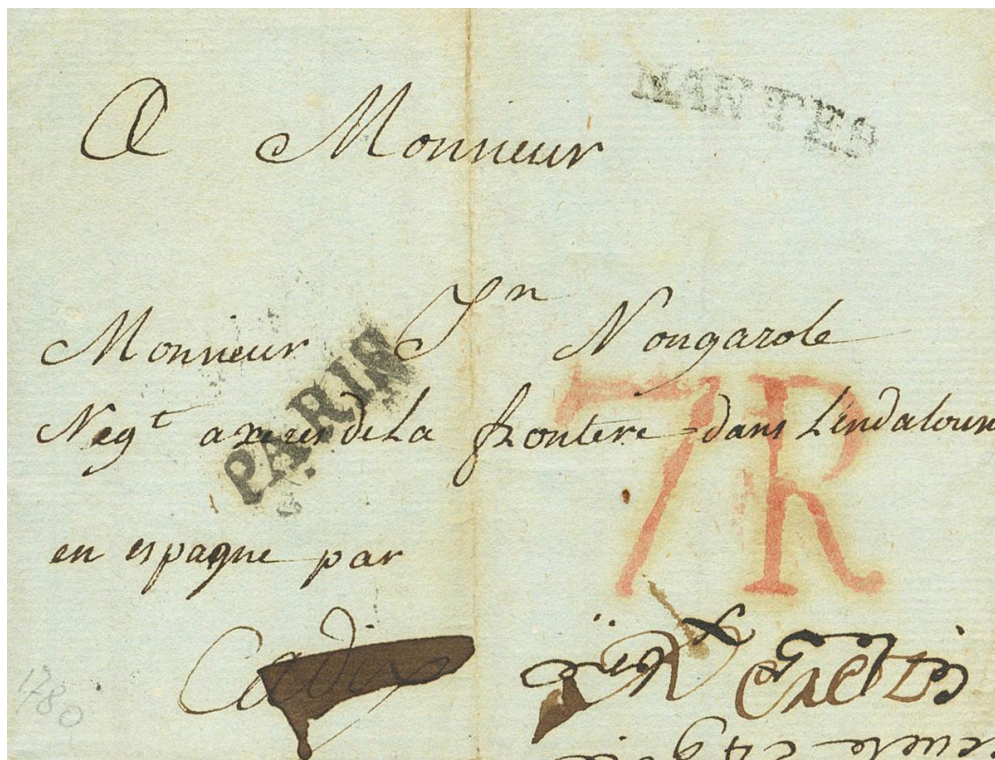 NANTES
A Monsieur
Monsieur Jn Nougarole
PARIS
Negt a xeres de La frontere = dans L'endalous
7R
en espagne par
Cadix
1780